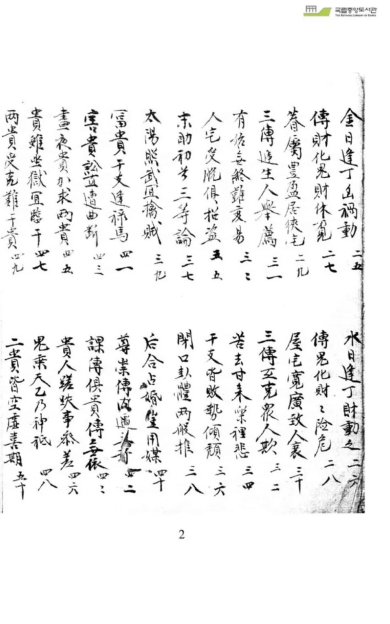 국립중앙도서관
THE NATIONAL LIBRARY OF KOREA
金日逢丁凶禍動 二五
水日逢丁財動之 二六
傳財化鬼財休覓 二七
傳鬼化財〻險危 二八
眷屬豊盈居狹宅 二九
屋宅寬廣致人衰 三十
三傳遞生人擧薦 三一
三傳互克衆人欺 三二
有始無終難変易 三〻
苦去甘来樂裡悲 三四
人宅受脫俱招盜 三五
干支皆敗勢傾頹 三六
末助初兮三等論 三七
閉口卦體兩般推 三八
太陽照武宜擒賊 三九
后合占婚豈用媒 四十
冨貴干支逢祿馬 四一
尊崇傳內遇三奇 四二
害貴訟直遭曲斷 四三
課傳俱貴傳無依 四〻
晝夜貴加求兩貴 四五
貴人蹉跌事參差 四六
貴雖坐獄宜臨干 四七
鬼乘天乙乃神祇 四八
兩貴受克難干貴 四九
二貴皆空虛喜期 五十
2